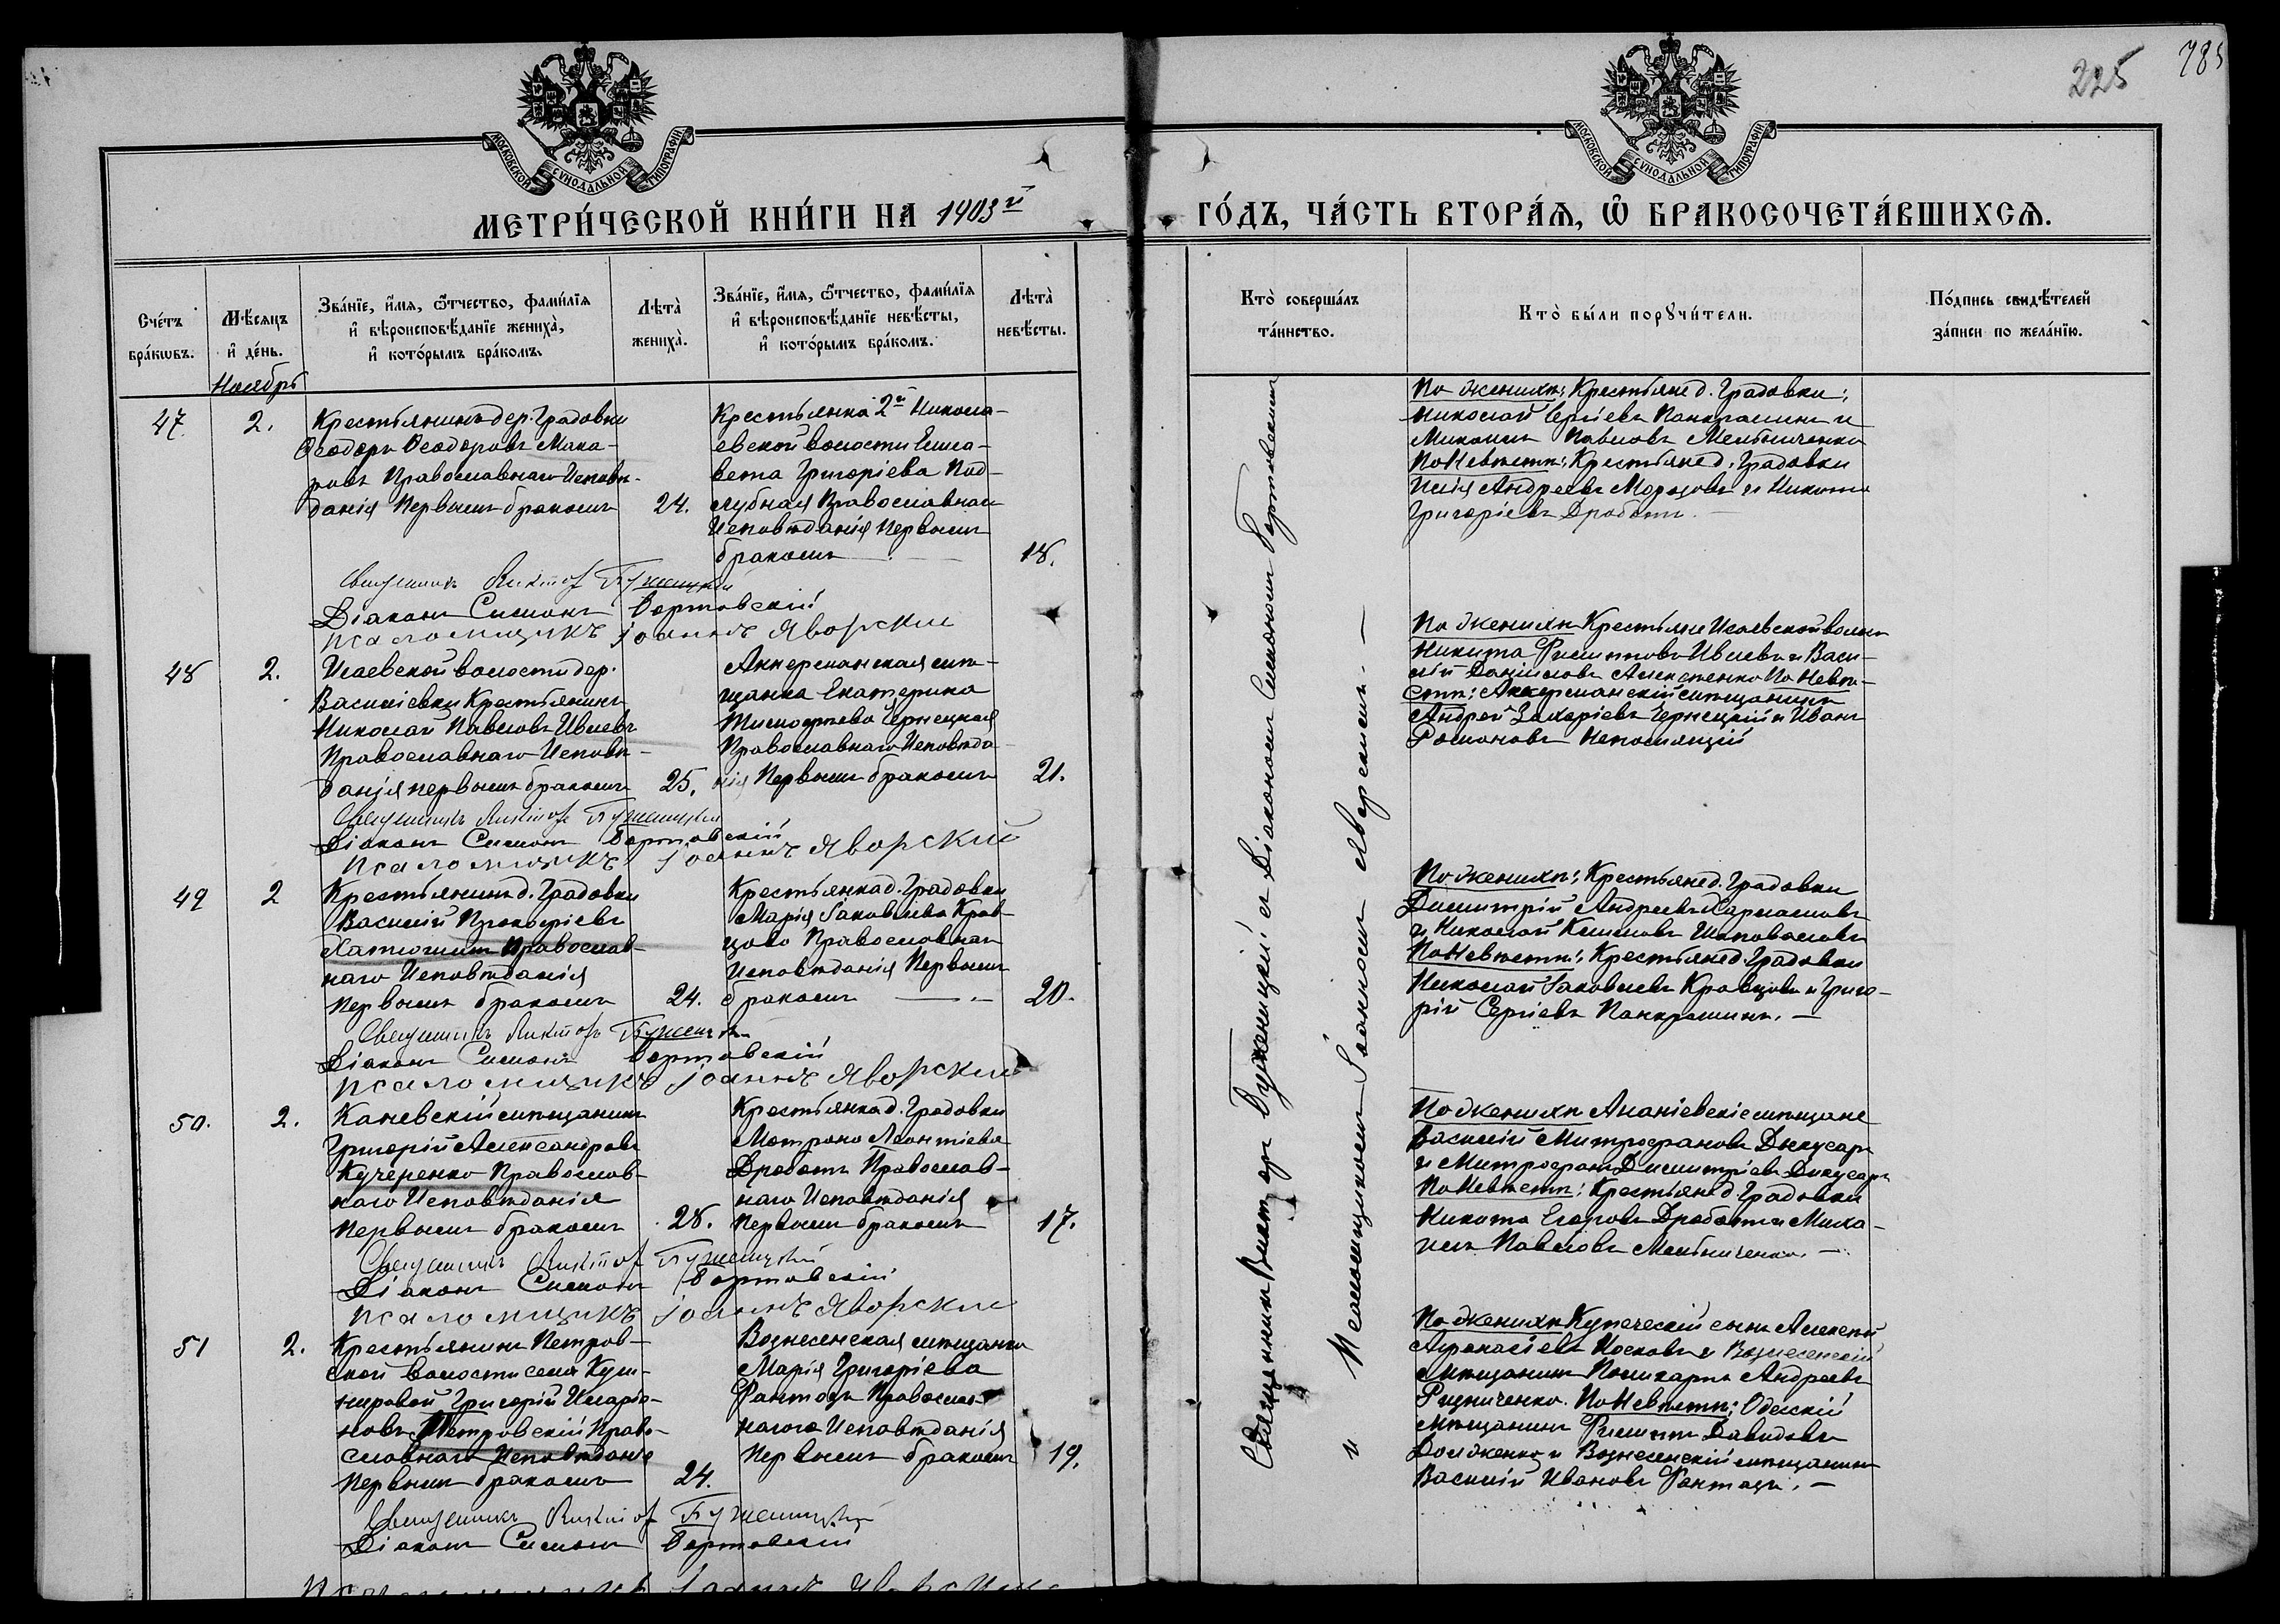 225
785
МОСКОВСКОЙ СѴНОДАЛЬНОЙ ТИПОГРАФІИ
МОСКОВСКОЙ СѴНОДАЛЬНОЙ ТИПОГРАФІИ
МЕТРИ́ЧЕСКОЙ КНИ́ГИ НА 1903й
ГО́ДЪ, ЧА́СТЬ ВТОРА́Ѧ, Ѽ БРАКОСОЧЕТА́ВШИХСѦ.
Сче́тъ бра́кωвъ.
Мѣ́сѧцъ и҆ де́нь.
Зва́нїе, и҆́мѧ, ѻ҆́тчество, фами́лїѧ и҆ вѣроисповѣ́данїе жениха̀, и҆ кото́рымъ бра́комъ.
Лѣта̀ жениха̀.
Зва́нїе, и҆́мѧ, ѻ҆́тчество, фами́лїѧ и҆ вѣроисповѣ́данїе невѣ́сты, и҆ кото́рымъ бра́комъ.
Лѣта̀ невѣ́сты.
Кто̀ соверша́лъ та́инство.
Кто̀ бы́ли порꙋчи́тели.
По́дпись свидѣ́телей за́писи по жела́нїю.
Ноябрь
47.
2.
Крестьянинъ дер. Градовки
Ѳеодоръ Ѳеодоровъ Мака-
ровъ Православнаго Исповѣ-
данія Первымъ бракомъ
24.
Крестьянка 2й Никола-
евской волости Елиса-
вета Григоріева Под-
лубная Православнаго
Исповѣданія Первымъ
бракомъ
18.
По женихѣ: Крестьяне д. Градовки:
Николай Сергіевъ Панкрашинъ и
Михаилъ Павловъ Мельниченко
По Невѣстѣ: Крестьяне д. Градовки
Илія Андреевъ Морозовъ и Никита
Григоріевъ Дроботъ.
Священникъ Викторъ Бужницкій
Діаконъ Симонъ Бортовскій
псаломщикъ Іоаннъ Яворскій
48
2.
Исаевской волости дер.
Василіевки Крестьянинъ
Николай Павловъ Ивлевъ
Православнаго Исповѣ-
данія первымъ бракомъ
25.
Аккерманская мѣ-
щанка Екатерина
Тимофѣева Чернецкая
Православнаго Исповѣда-
нія Первымъ бракомъ
21.
По женихѣ Крестьяне Исаевской волости
Никита Филипповъ Ивлевъ и Васи-
лій Даніиловъ Алексѣенко По Невѣ-
стѣ: Аккерманскій мѣщанинъ
Андрей Захаріевъ Чернецкій и Иванъ
Романовъ Непомнящій
Священникъ Викторъ Бужницкій
Діаконъ Симонъ Бортовскій
псаломщикъ Іоаннъ Яворскій
49
2
Крестьянинъ д. Градовки
Василій Прокофіевъ
Православ-
наго Исповѣданія
Первымъ бракомъ
24.
Крестьянка д. Градовки
Марія Іаковлева Крав-
цова Православнаго
Исповѣданія Первымъ
бракомъ
20.
По женихѣ: Крестьяне д. Градовки
Димитрій Андреевъ
и Николай Климовъ Шаповаловъ
По Невѣстѣ: Крестьяне д. Градовки
Николай Іаковлевъ Кравцовъ и Григо-
рій Сергіевъ Панкрашинъ. —
Священникъ Викторъ Бужницкій
Діаконъ Симонъ Бортовскій
псаломщикъ Іоаннъ Яворскій
50.
2.
Каневскій мѣщанинъ
Григорій Александровъ
Кучеренко Православ-
наго Исповѣданія
Первымъ бракомъ
28.
Крестьянка д. Градовки
Матрона Леонтіева
Дроботъ Православ-
наго Исповѣданія
Первымъ бракомъ
17.
По женихѣ Ананіевскіе мѣщане
Василій Митрофановъ Дикусаръ
и Митрофанъ Димитріевъ Дикусаръ
По Невѣстѣ: Крестьяне д. Градовки
Никита Егоровъ Дроботъ и Миха-
илъ Павловъ Мельниченко. —
Священникъ Викторъ Бужницкій
Діаконъ Симонъ Бортовскій
псаломщикъ Іоаннъ Яворскій
51
2.
Крестьянинъ Петров-
ской волости села
Григорій Иларіо-
новъ Петровскій Право-
славнаго Исповѣданіе
Первымъ бракомъ
24.
Вознесенская мѣщанка
Марія Григоріева
Фантозъ Православ-
наго Исповѣданія
Первымъ бракомъ
19.
По женихѣ Купеческій сынъ Алексѣй
Афанасіевъ Носковъ и Вознесенскій
Мѣщанинъ Поликарпъ Андреевъ
Ризниченко. По Невѣстѣ: Одесскій
мѣщанинъ Филиппъ Давидовъ
Долженко и Вознесенскій мѣщанинъ
Василій Ивановъ Фантозъ. —
Священникъ Викторъ Бужницкій
Діаконъ Симонъ Бортовскій
псаломщикъ Іоаннъ Яворскій
Священникъ Викторъ Бужницкій съ Діакономъ Симономъ Бортовскимъ
и Псаломщикомъ Іоанномъ Яворскимъ. —